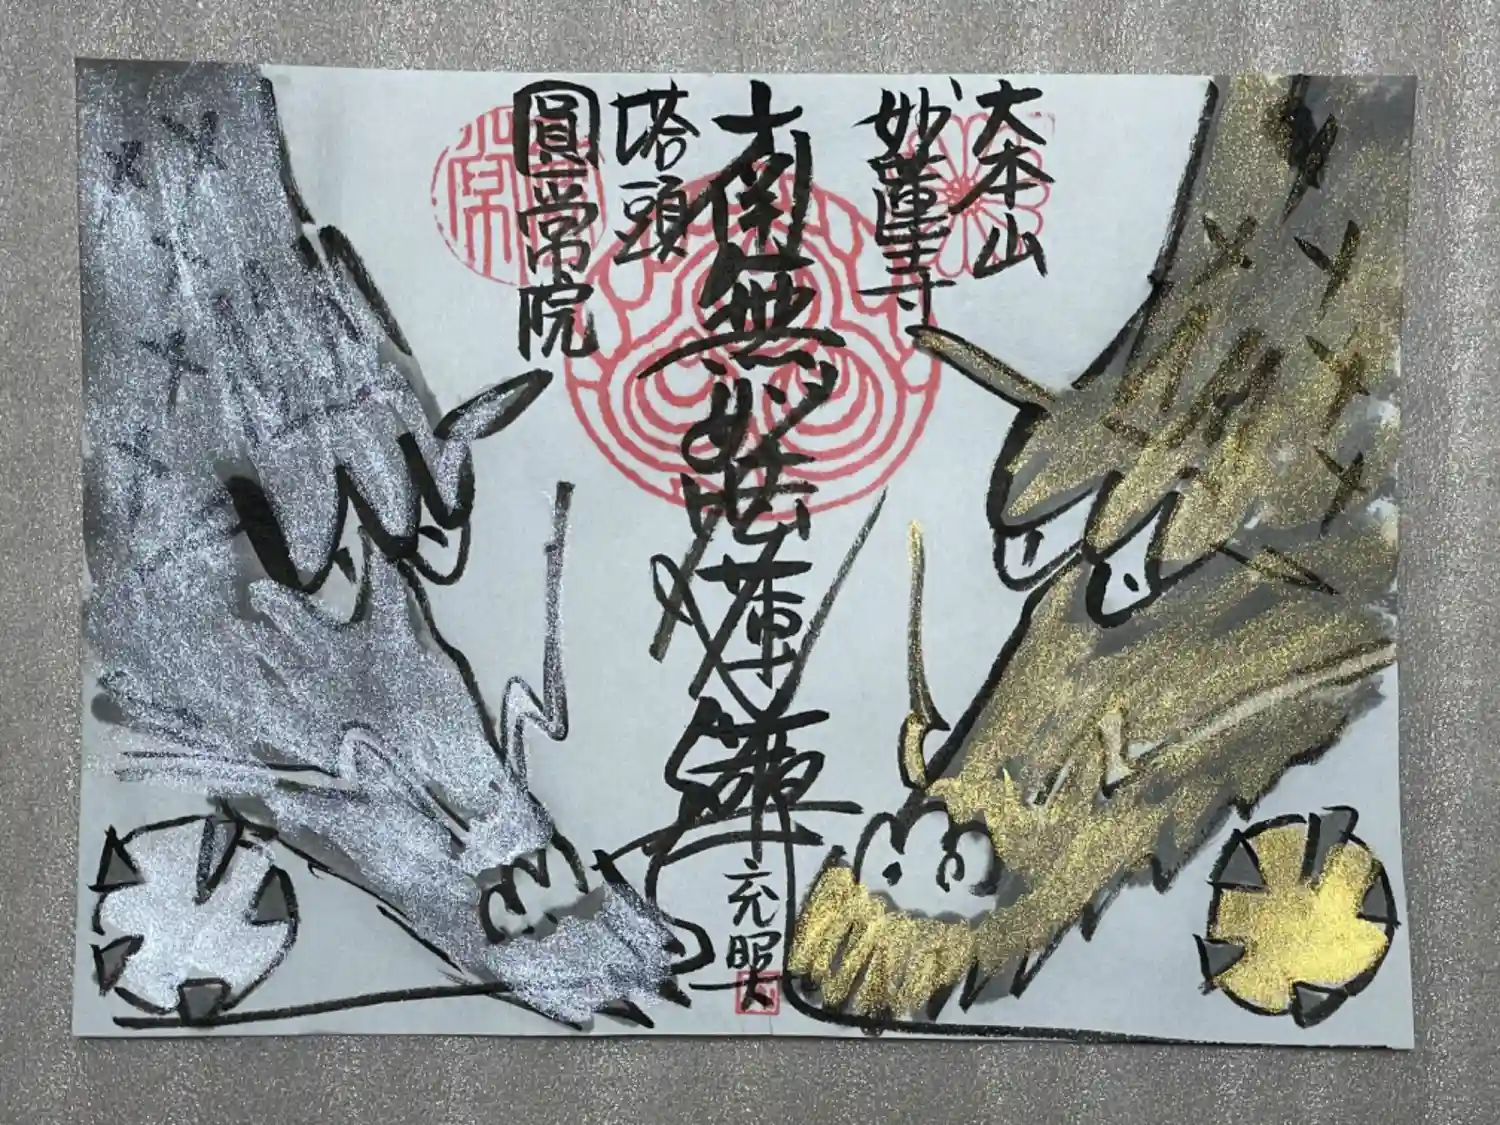 大本山
妙蓮寺
南無妙法蓮華経
充昭
塔頭
圓常院